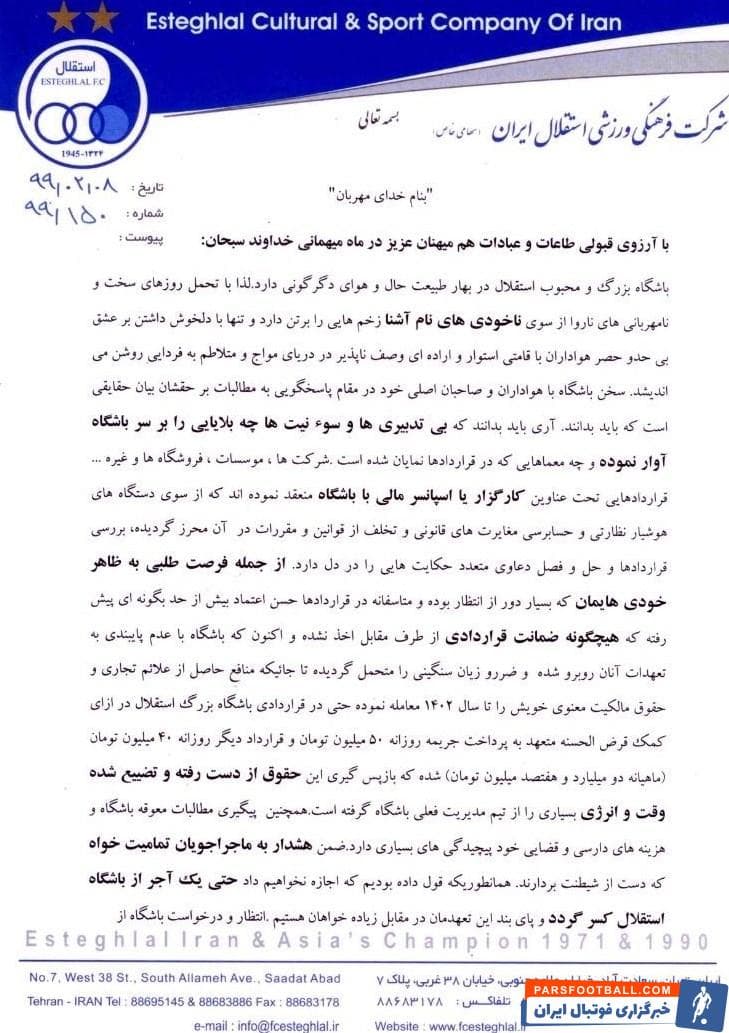 Esteghlal Cultural & Sport Company Of Iran
استقلال
ESTEGHLAL F.C
1945-۱۳۲۴
شرکت فرهنگی ورزشی استقلال ایران (سهامی خاص)
بسمه تعالی
تاریخ : ۹۹/۰۲/۰۸
شماره : ۹۹/۱۵۰
پیوست :
"بنام خدای مهربان"
با آرزوی قبولی طاعات و عبادات هم میهنان عزیز در ماه میهمانی خداوند سبحان:
باشگاه بزرگ و محبوب استقلال در بهار طبیعت حال و هوای دگرگونی دارد.لذا با تحمل روزهای سخت و
نامهربانی های ناروا از سوی ناخودی های نام آشنا زخم هایی را برتن دارد و تنها با دلخوش داشتن بر عشق
بی حدو حصر هواداران با قامتی استوار و اراده ای وصف ناپذیر در دریای مواج و متلاطم به فردایی روشن می
اندیشد. سخن باشگاه با هواداران و صاحبان اصلی خود در مقام پاسخگویی به مطالبات بر حقشان بیان حقایقی
است که باید بدانند. آری باید بدانند که بی تدبیری ها و سوء نیت ها چه بلایایی را بر سر باشگاه
آوار نموده و چه معماهایی که در قراردادها نمایان شده است .شرکت ها ، موسسات ، فروشگاه ها و غیره ...
قراردادهایی تحت عناوین کارگزار یا اسپانسر مالی با باشگاه منعقد نموده اند که از سوی دستگاه های
هوشیار نظارتی و حسابرسی مغایرت های قانونی و تخلف از قوانین و مقررات در آن محرز گردیده، بررسی
قراردادها و حل و فصل دعاوی متعدد حکایت هایی را در دل دارد. از جمله فرصت طلبی به ظاهر
خودی هایمان که بسیار دور از انتظار بوده و متاسفانه در قراردادها حسن اعتماد بیش از حد بگونه ای پیش
رفته که هیچگونه ضمانت قراردادی از طرف مقابل اخذ نشده و اکنون که باشگاه با عدم پایبندی به
تعهدات آنان روبرو شده و ضررو زیان سنگینی را متحمل گردیده تا جائیکه منافع حاصل از علائم تجاری و
حقوق مالکیت معنوی خویش را تا سال ۱۴۰۲ معامله نموده حتی در قراردادی باشگاه بزرگ استقلال در ازای
کمک قرض الحسنه متعهد به پرداخت جریمه روزانه ۵۰ میلیون تومان و قرارداد دیگر روزانه ۴۰ میلیون تومان
(ماهیانه دو میلیارد و هفتصد میلیون تومان) شده که بازپس گیری این حقوق از دست رفته و تضییع شده
وقت و انرژی بسیاری را از تیم مدیریت فعلی باشگاه گرفته است.همچنین پیگیری مطالبات معوقه باشگاه و
هزینه های دارسی و قضایی خود پیچیدگی های بسیاری دارد.ضمن هشدار به ماجراجویان تمامیت خواه
که دست از شیطنت بردارند. همانطوریکه قول داده بودیم که اجازه نخواهیم داد حتی یک آجر از باشگاه
استقلال کسر گردد و پای بند این تعهدمان در مقابل زیاده خواهان هستیم .انتظار و درخواست باشگاه از
Esteghlal Iran & Asia's Champion 1971 & 1990
No.7, West 38 St., South Allameh Ave., Saadat Abad
Tehran - IRAN Tel : 88695145 & 88683886 Fax : 88683178
e-mail : info@fcesteghlal.ir
جنوبی، خیابان ۳۸ غربی، پلاک ۷
تلفاکس : ۸۸۶۸۳۱۷۸
Website : www.fcesteghlal.ir
PARSFOOTBALL.COM
خبرگزاری فوتبال ایران